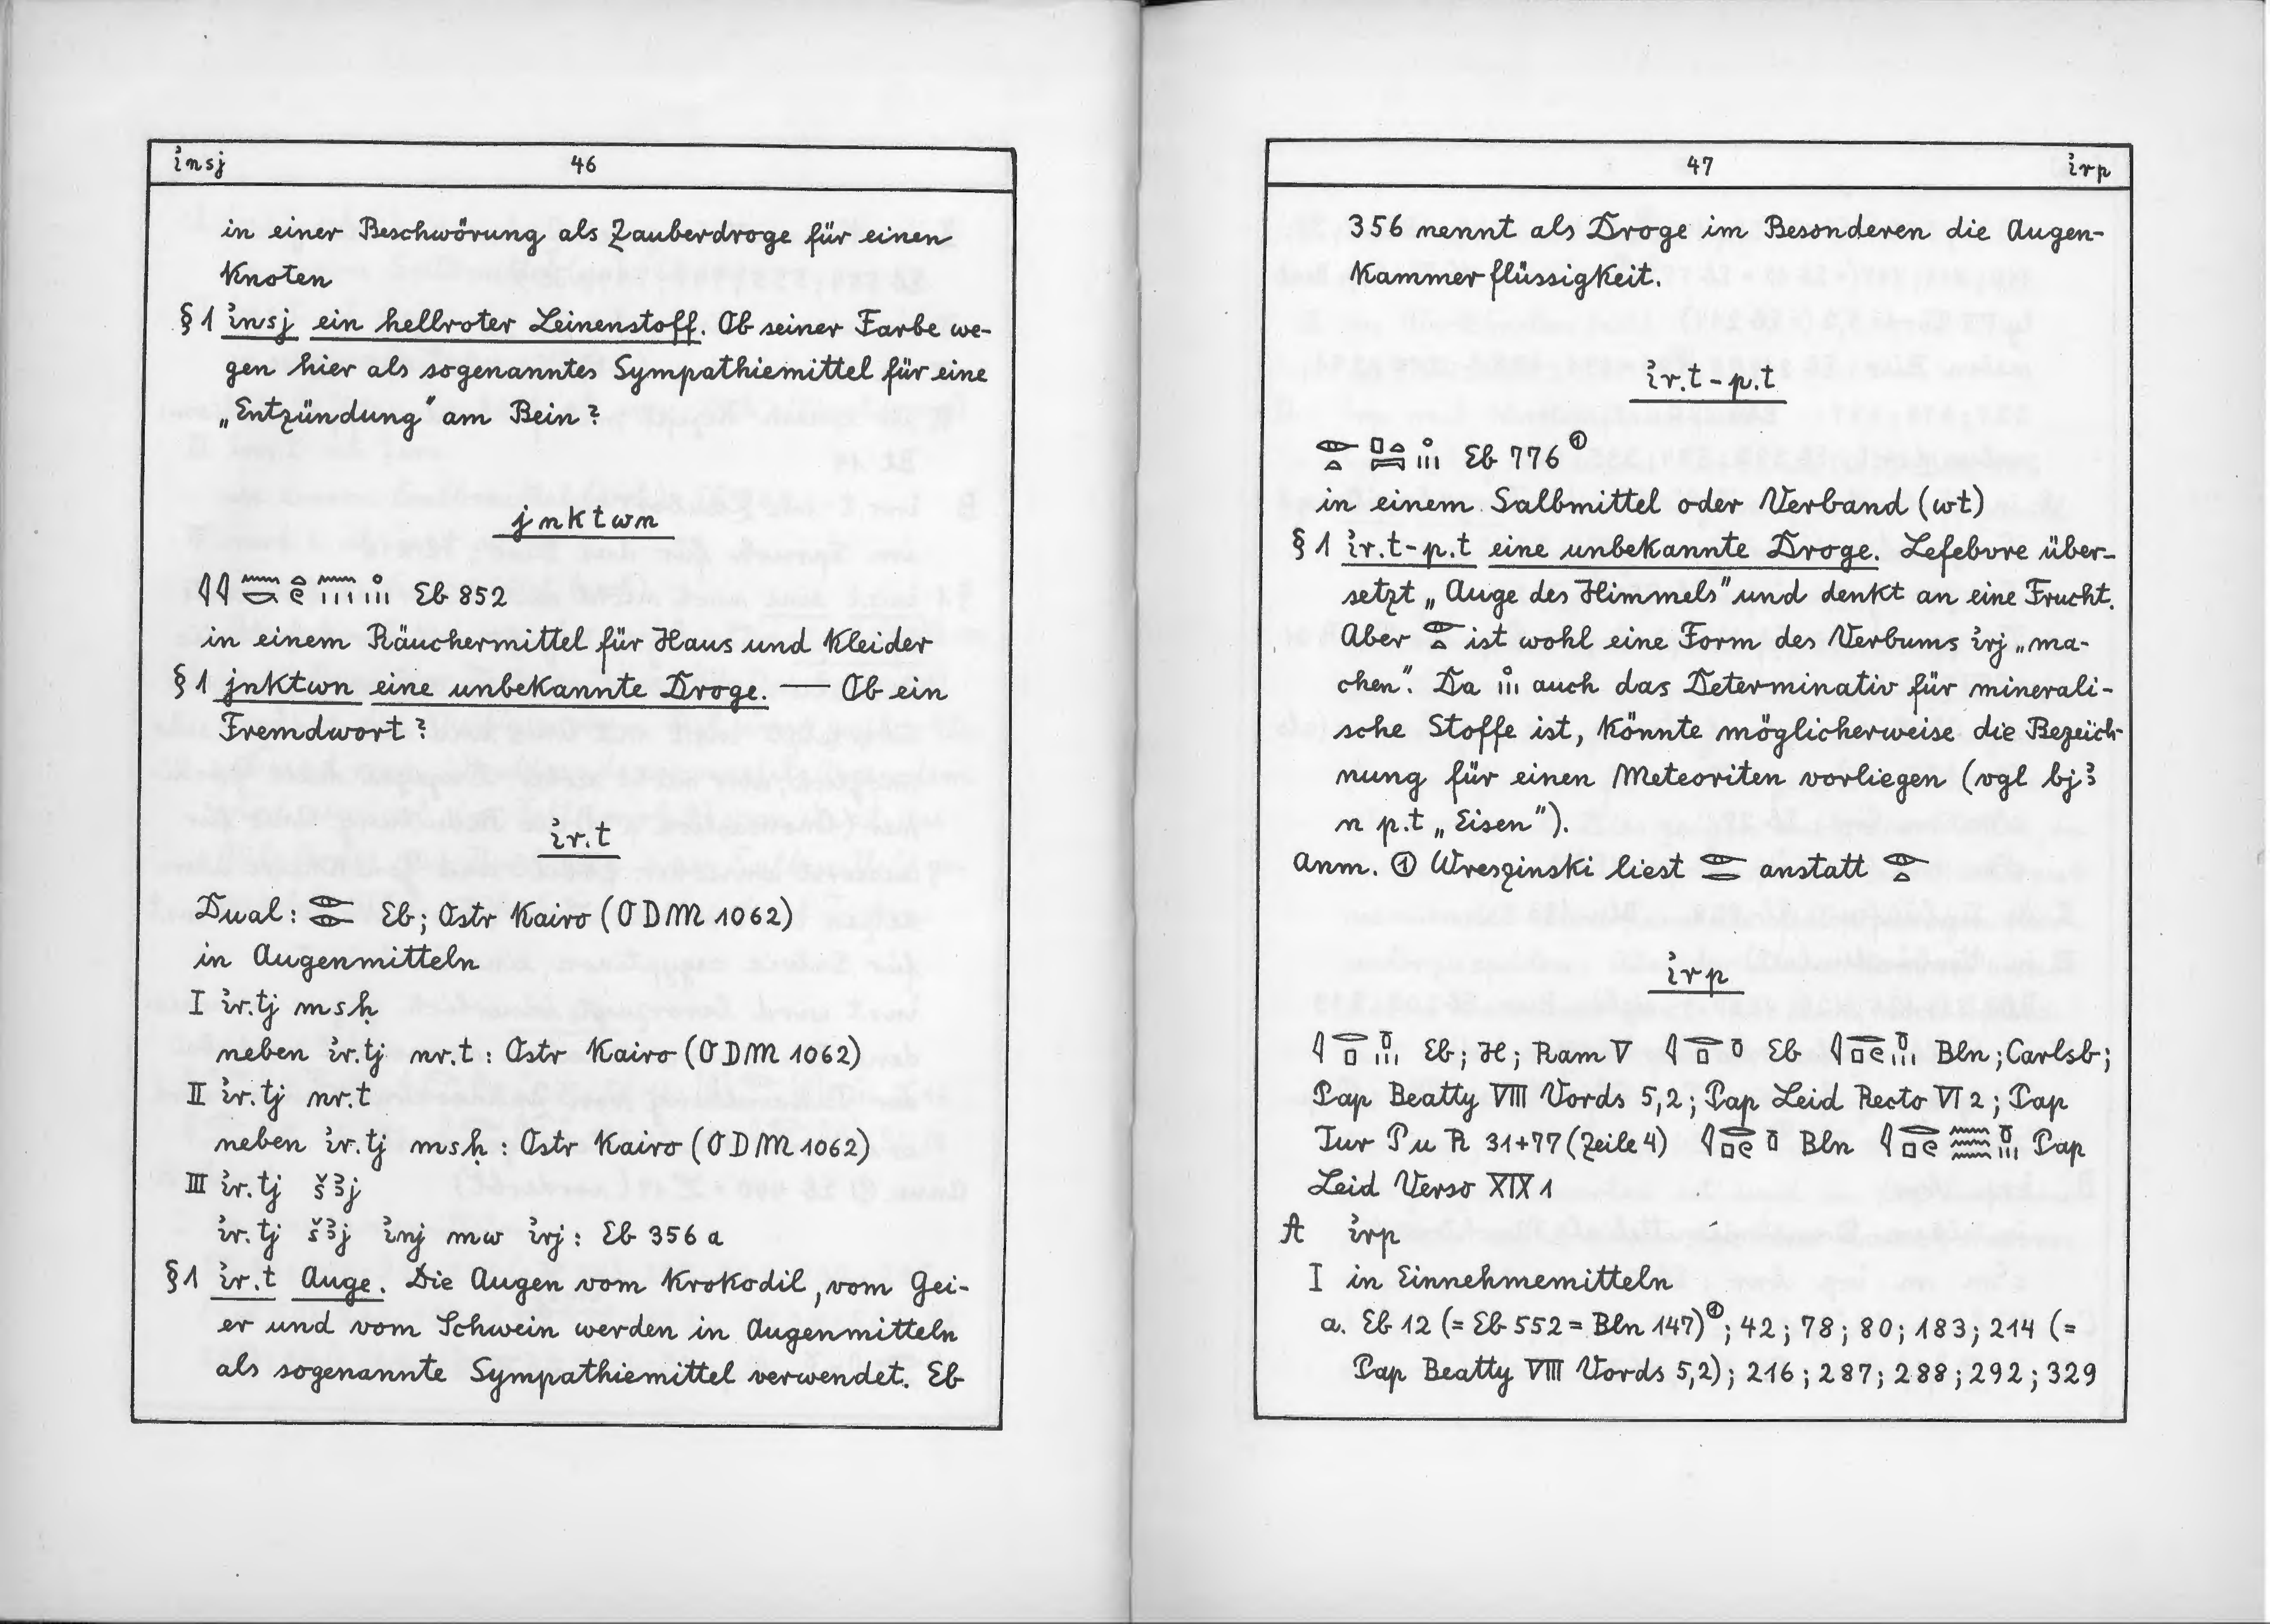 i͗nsj 46
in einer Beschwörung als Zauberdroge für einen
Knoten
§ 1 i͗nsj ein hellroter Leinenstoff. Ob seiner Farbe we-
gen hier als sogenanntes Sympathiemittel für eine
„Entzündung" am Bein?
jnktwn
Eb 852
in einem Räuchermittel für Haus und Kleider
§ 1 jnktwn eine unbekannte Droge. — Ob ein
Fremdwort?
i͗r.t
Dual: 𓁹𓁹 Eb; Ostr Kairo (ODM 1062)
in Augenmitteln
I i͗r.tj msḥ
neben i͗r.tj nr.t : Ostr Kairo (ODM 1062)
II i͗r.tj nr.t
neben i͗r.tj msḥ : Ostr Kairo (ODM 1062)
III i͗r.tj šꜣj
i͗r.tj šꜣj i͗nj mw i͗rj : Eb 356 a
§ 1 i͗r.t Auge. Die Augen vom Krokodil, vom Gei-
er und vom Schwein werden in Augenmitteln
als sogenannte Sympathiemittel verwendet. Eb
47 i͗rp
356 nennt als Droge im Besonderen die Augen-
Kammerflüssigkeit.
i͗r.t-p.t
𓁹𓏏 𓊪𓏏𓇯 𓈒𓏥 Eb 776 ①
in einem Salbmittel oder Verband (wt)
§ 1 i͗r.t-p.t eine unbekannte Droge. Lefebvre über-
setzt „Auge des Himmels" und denkt an eine Frucht.
Aber 𓁹𓏏 ist wohl eine Form des Verbums i͗rj „ma-
chen". Da 𓈒𓏥 auch das Determinativ für minerali-
sche Stoffe ist, könnte möglicherweise die Bezeich-
nung für einen Meteoriten vorliegen (vgl bjꜣ
n p.t „Eisen").
Anm. ① Wreszinski liest 𓁹𓂋 anstatt 𓁹𓏏
i͗rp
𓇋𓂋𓊪 𓏊𓏥 Eb; H; Ram V 𓇋𓂋𓊪 𓏊 Eb 𓇋𓂋𓊪𓏲𓏊𓏥 Bln; Carlsb;
Pap Beatty VIII Vords 5,2; Pap Leid Recto VI 2; Pap
Tur P u R 31+77 (Zeile 4) 𓇋𓂋𓊪𓏲 𓏊 Bln 𓇋𓂋𓊪𓏲 𓈗 𓏊𓏥 Pap
Leid Verso XIX 1
A i͗rp
I in Einnehmemitteln
a. Eb 12 (= Eb 552 = Bln 147) ①; 42; 78; 80; 183; 214 (=
Pap Beatty VIII Vords 5,2); 216; 287; 288; 292; 329